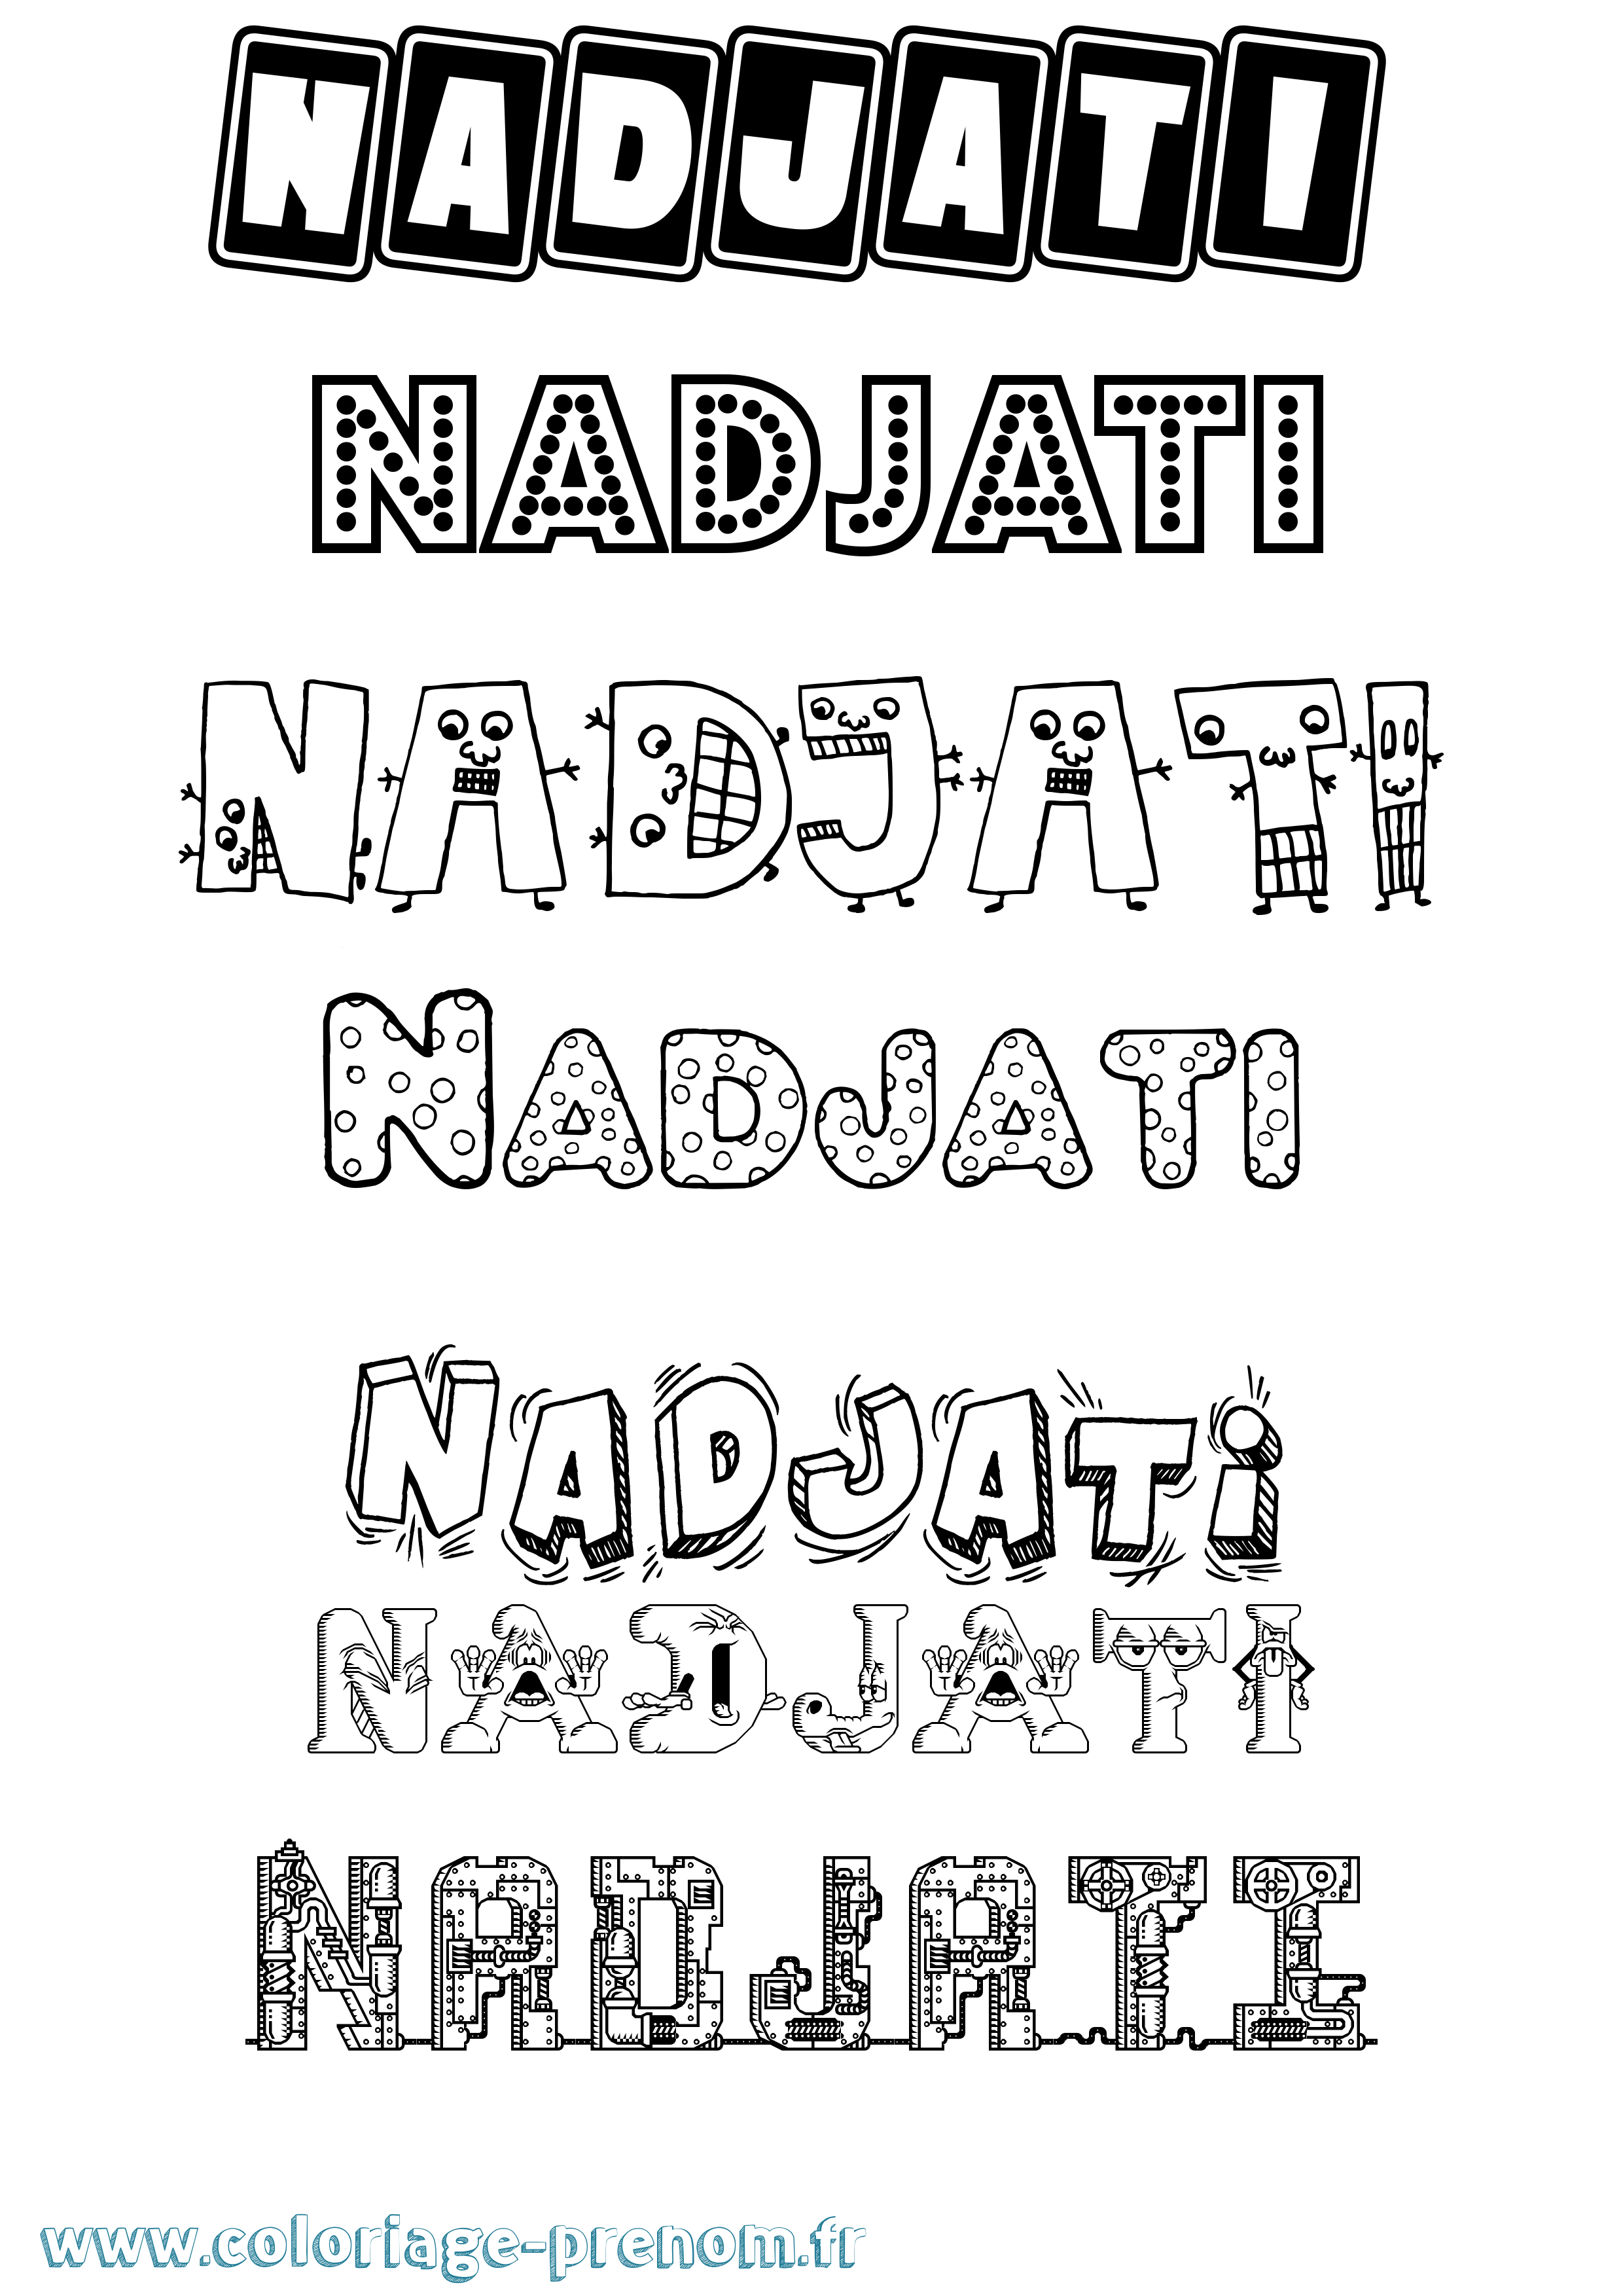 NADJATI
NADJATI
NADJATI
NADJATI
NADJATi
NADJATI
NADJATI
www.coloriage-prenom.fr